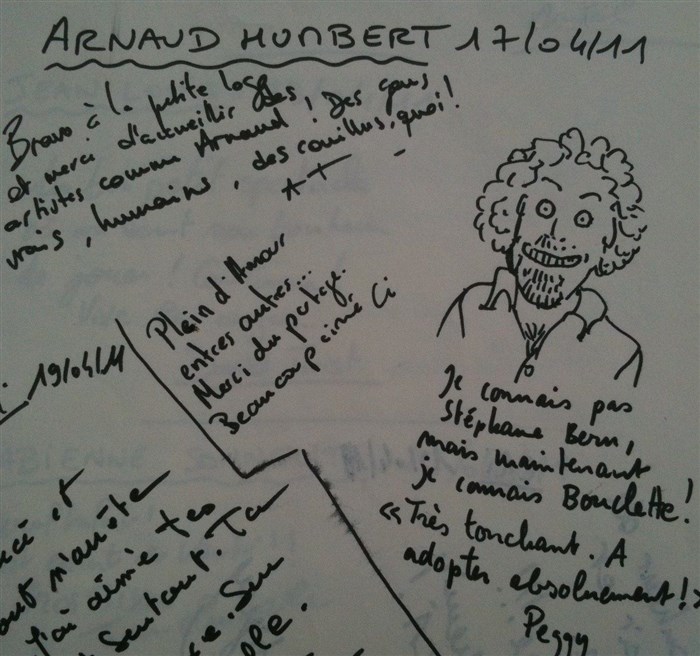 ARNAUD HUMBERT 17/04/11
Bravo à la petite loge
et merci d'accueillir des
artistes comme Arnaud ! Des gens
vrais, humains, des couillus, quoi !
A+
Plein d'Amour
entres autres...
Merci du partage.
Beaucoup aimé Ci
Je connais pas
Stéphane Bern,
mais maintenant
je connais Bouclette !
«Très touchant. A
adopter absolument !»
Peggy
19/04/11
et
n'arrête
J'ai aimé tes
surtout. Tu
. Sur